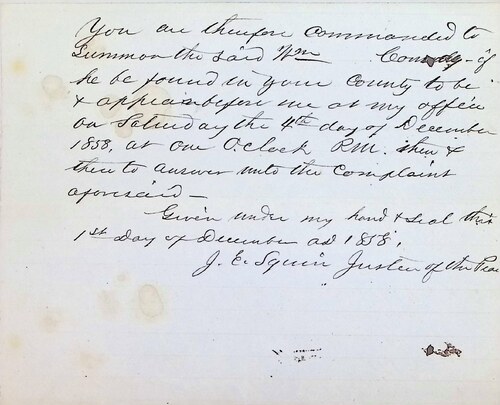 You are therefore commanded to
Summon the said Wm Comedy - if
he be found in your County to be
& appear before me at my office
on Saturday the 4th day of December
1858, at one O,clock P.M. then &
there to answer unto the Complaint
aforesaid -
Given under my hand & seal this
1st Day of December ad 1858,
J. E. Squir Justice of the Peac